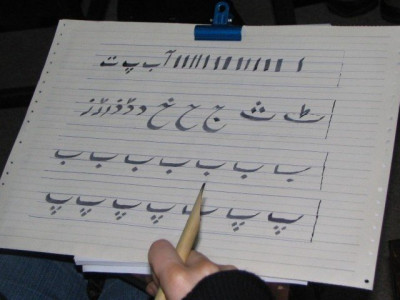 ا ا ا ا ا ا ا ا ا ا ا ا آ ب پ ت
ٹ ث ج ح خ د ڈ ذ ر ڑ ز
ب ب ب ب ب ب ب
پ پ پ پ پ پ